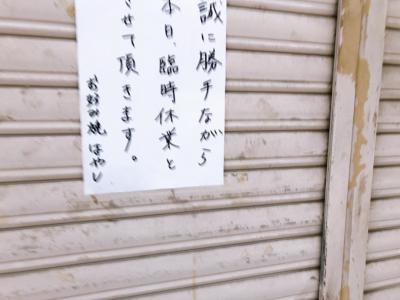 誠に勝手ながら
本日、臨時休業と
させて頂きます。
お好み焼はやし